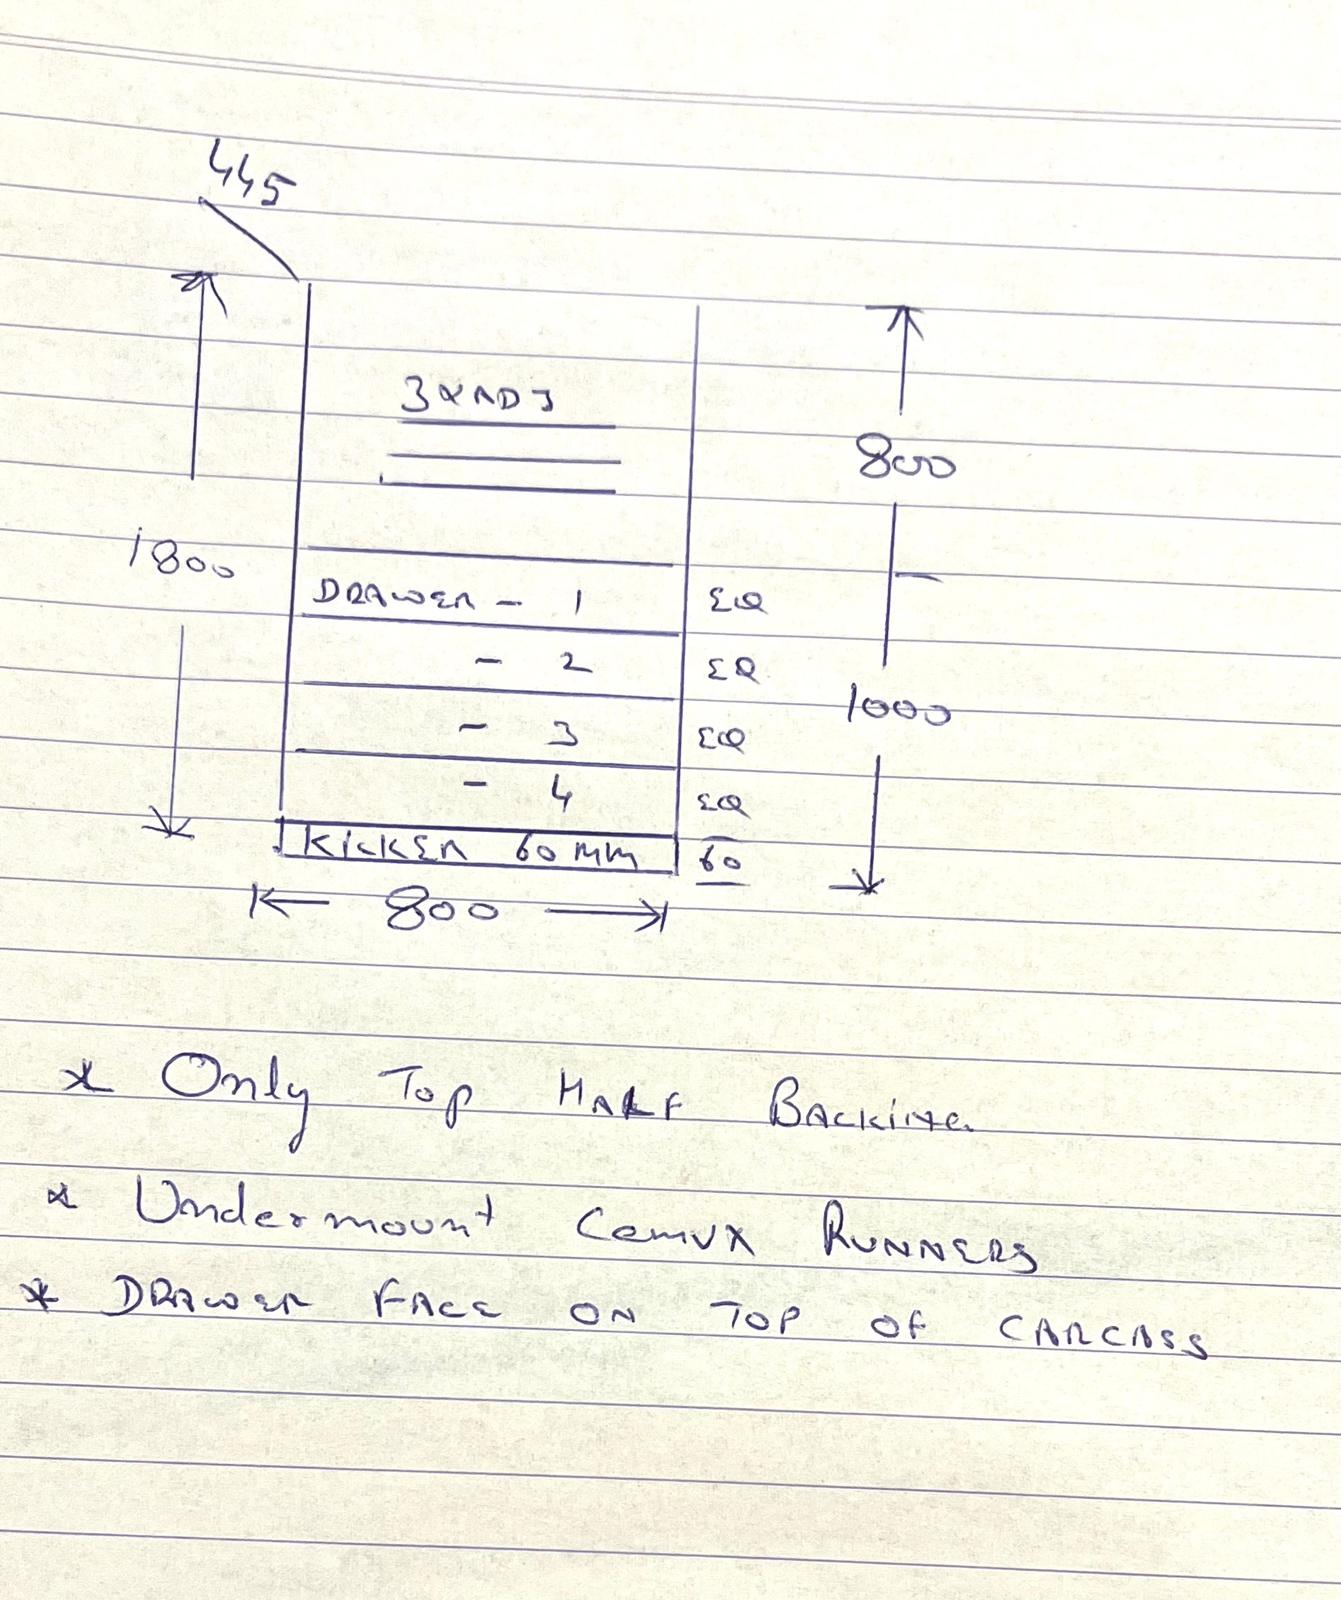 445
3 x ADJ
800
1800
DRAWER - 1 EQ
- 2 EQ
1000
- 3 EQ
- 4 EQ
KICKER 60 MM 60
800
* Only Top HALF BACKING
* Undermount RUNNERS
* DRAWER FACE ON TOP OF CARCASS